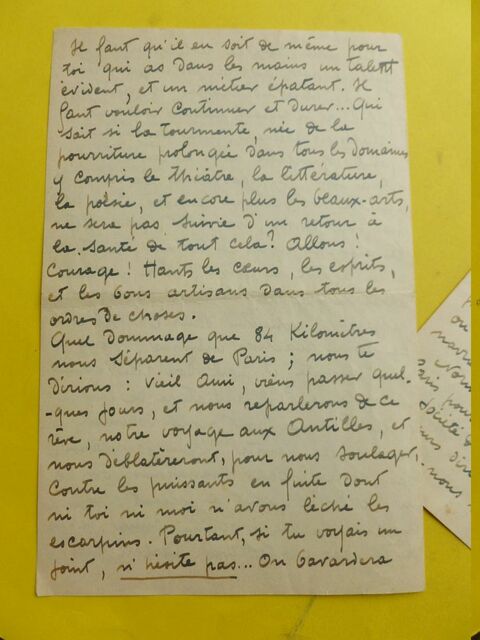 Il faut qu'il en soit de même pour
toi qui as dans les mains un talent
évident, et un métier épatant. Il
faut vouloir continuer et durer... Qui
sait si la tourmente, née de la
pourriture prolongée dans tous les domaines
y compris le théâtre, la littérature,
la poésie, et encore plus les beaux-arts,
ne sera pas suivie d'un retour à
la santé de tout cela? Allons!
Courage! Hauts les cœurs, les esprits,
et les bons artisans dans tous les
ordres de choses.
Quel dommage que 84 Kilomètres
nous séparent de Paris; nous te
dirions: vieil ami, viens passer quel-
-ques jours, et nous reparlerons de ce
rêve, notre voyage aux Antilles, et
nous déblatèreront, pour nous soulager,
contre les puissants en fuite dont
ni toi ni moi n'avons léché les
escarpins. Pourtant, si tu voyais un
joint, n'hésite pas... On bavardera
ou
Nous
pour
Société
nous